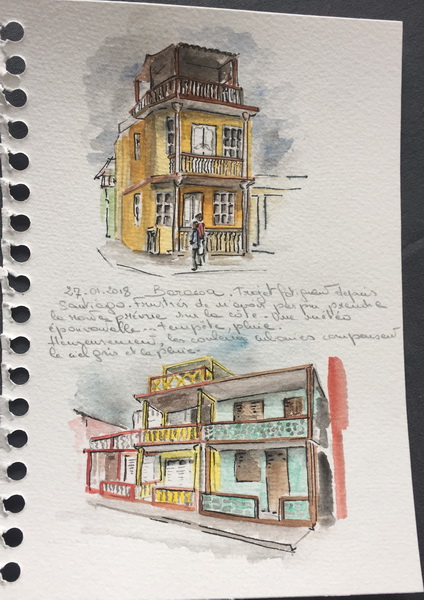 27.01.2018 Baracoa. Trajet fatigant depuis
Santiago. Frustrés de n'avoir pas pu prendre
la route prévue sur la côte. Une météo
épouvantable... tempête, pluie.
Heureusement, les couleurs cubaines compensent
le ciel gris et la pluie.